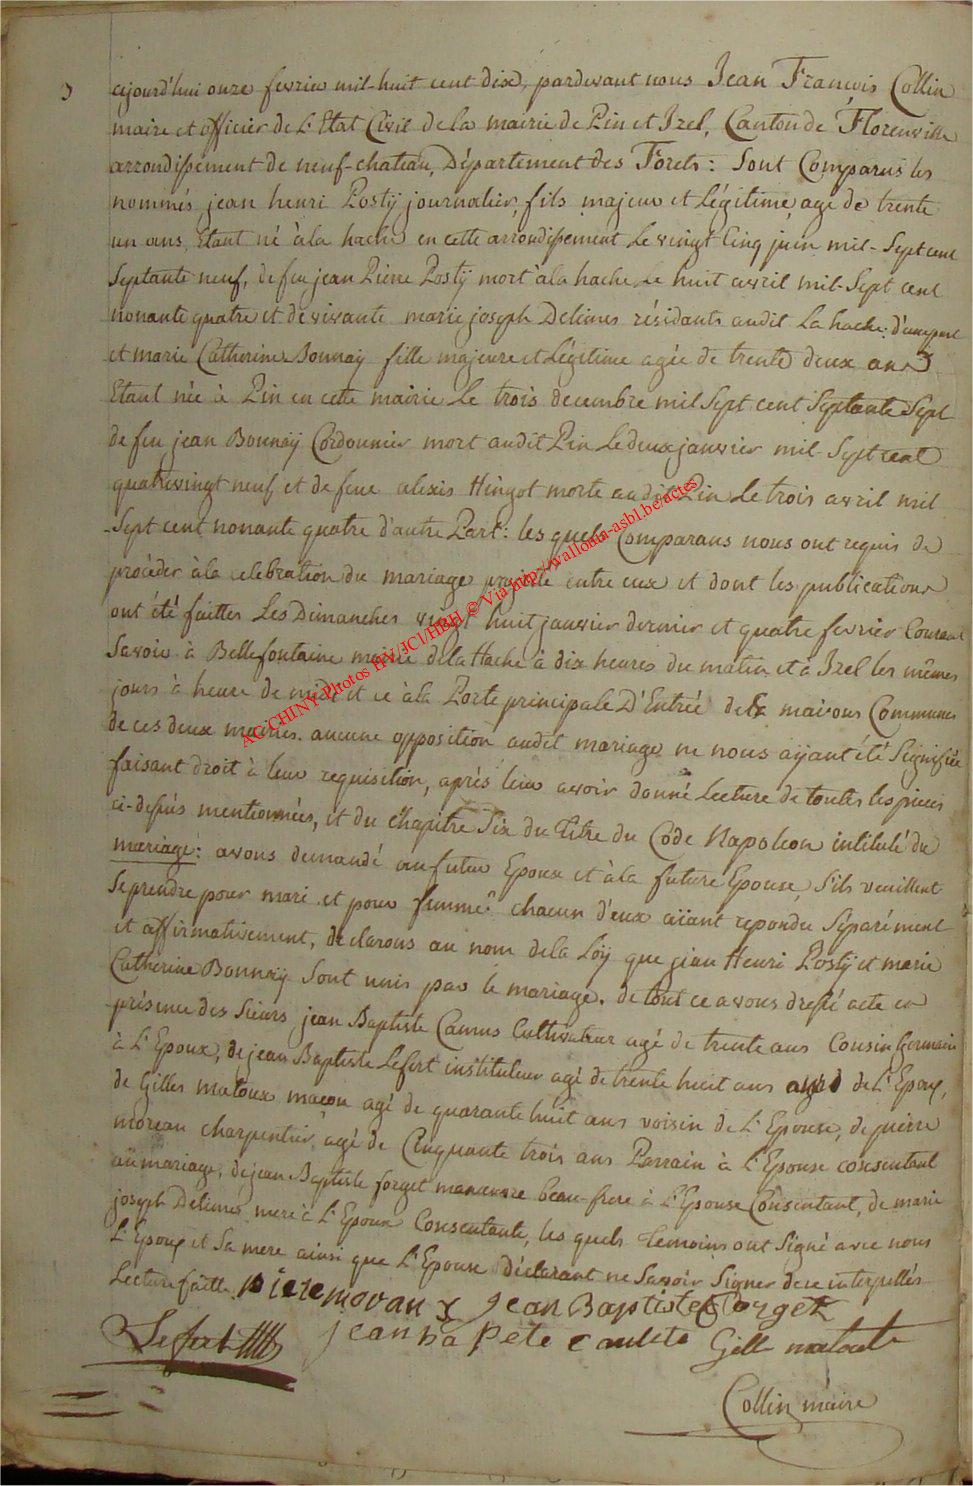 3
ajourd'hui onze fevrier mil-huit cent dix, pardevant nous Jean François Collin
maire et officier de L'Etat Civil de la mairie de Pin et Izel, Canton de Florenville
arrondissement de neuf-chateau, Département des Forets: Sont Comparus les
nommés, jean henri Postÿ journalier, fils majeur et Légitime, agé de trente
un ans, Etant né à la hache en cette arrondissement Le vingt Cinq juin mil-Sept cent
Septante neuf, de feu jean Piere Postÿ mort à la hache Le huit avril mil-Sept cent
nonante quatre et de vivante marie joseph Delimes résidants audit La hache: d'une part
et marie Catherine Bonnaÿ fille majeure et Légitime agée de trente deux ans
Etant née à Pin en cette mairie Le trois decembre mil Sept cent Septante Sept
de feu jean Bonnaÿ Cordonnier mort audit Pin Le deux janvier mil Sept cent
quatrevingt neuf et de feue alexis Hingot morte audit Pin Le trois avril mil
-Sept cent nonante quatre d'autre Part: les quels Comparans nous ont requis de
procéder à la celebration du mariage projeté entre eux et dont les publications
ont été faittes Les Dimanches vingt huit janvier dernier et quatre fevrier Courant
Savoir à Bellefontaine mairie de la Hache à dix heures du matin et à Izel les mêmes
jours à heure de midi et ce à la Porte principale D'Entrée de la maisons Communes
de ces deux mairies. aucune opposition audit mariage ne nous aÿant été Signifiée
faisant droit à leur requisition, aprés leur avoir donné Lecture de toutes les pieces
ci-dessus mentionnées, et du Chapitre Six du Titre du Code Napoleon intitulé du
mariage: avons demandé au futur Epoux et à la future Epouse, S'ils veuillent
Se prendre pour mari et pour femme? chacun d'eux aïant repondu Séparément
et affirmativement, declarons au nom de la Loÿ que jean Henri Postÿ et marie
Catherine Bonnaÿ Sont unis par le mariage. de tout ce avons dressé acte en
présence des Sieurs jean Baptiste Camus Cultivateur agé de trente ans Cousin Germain
à L'Epoux, de jean Baptiste Lefort instituteur agé de trente huit ans de L'Epoux,
de Gilles matoux maçon agé de quarante huit ans voisin de L'Epouse, de pierre
moreau charpentier, agé de Cinquante trois ans Parrain à L'Epouse consentant
au mariage, de jean Baptiste forget manœuvre beau-frere à L'Epouse Consentant, de marie
joseph Delimes mere à L'Epoux Consentante, les quels temoins ont Signé avec nous
L'Epoux et Sa mere ainsi que L'Epouse déclarant ne Savoir Signer de ce interpellés
Lecture faitte.
piere movaux Jean Baptiste Forget
Lefort jean bapete Gille matout
Collin maire
AC CHINY Photos HV/JCl/HBH © Via http://wallonia-asbl.be/actes